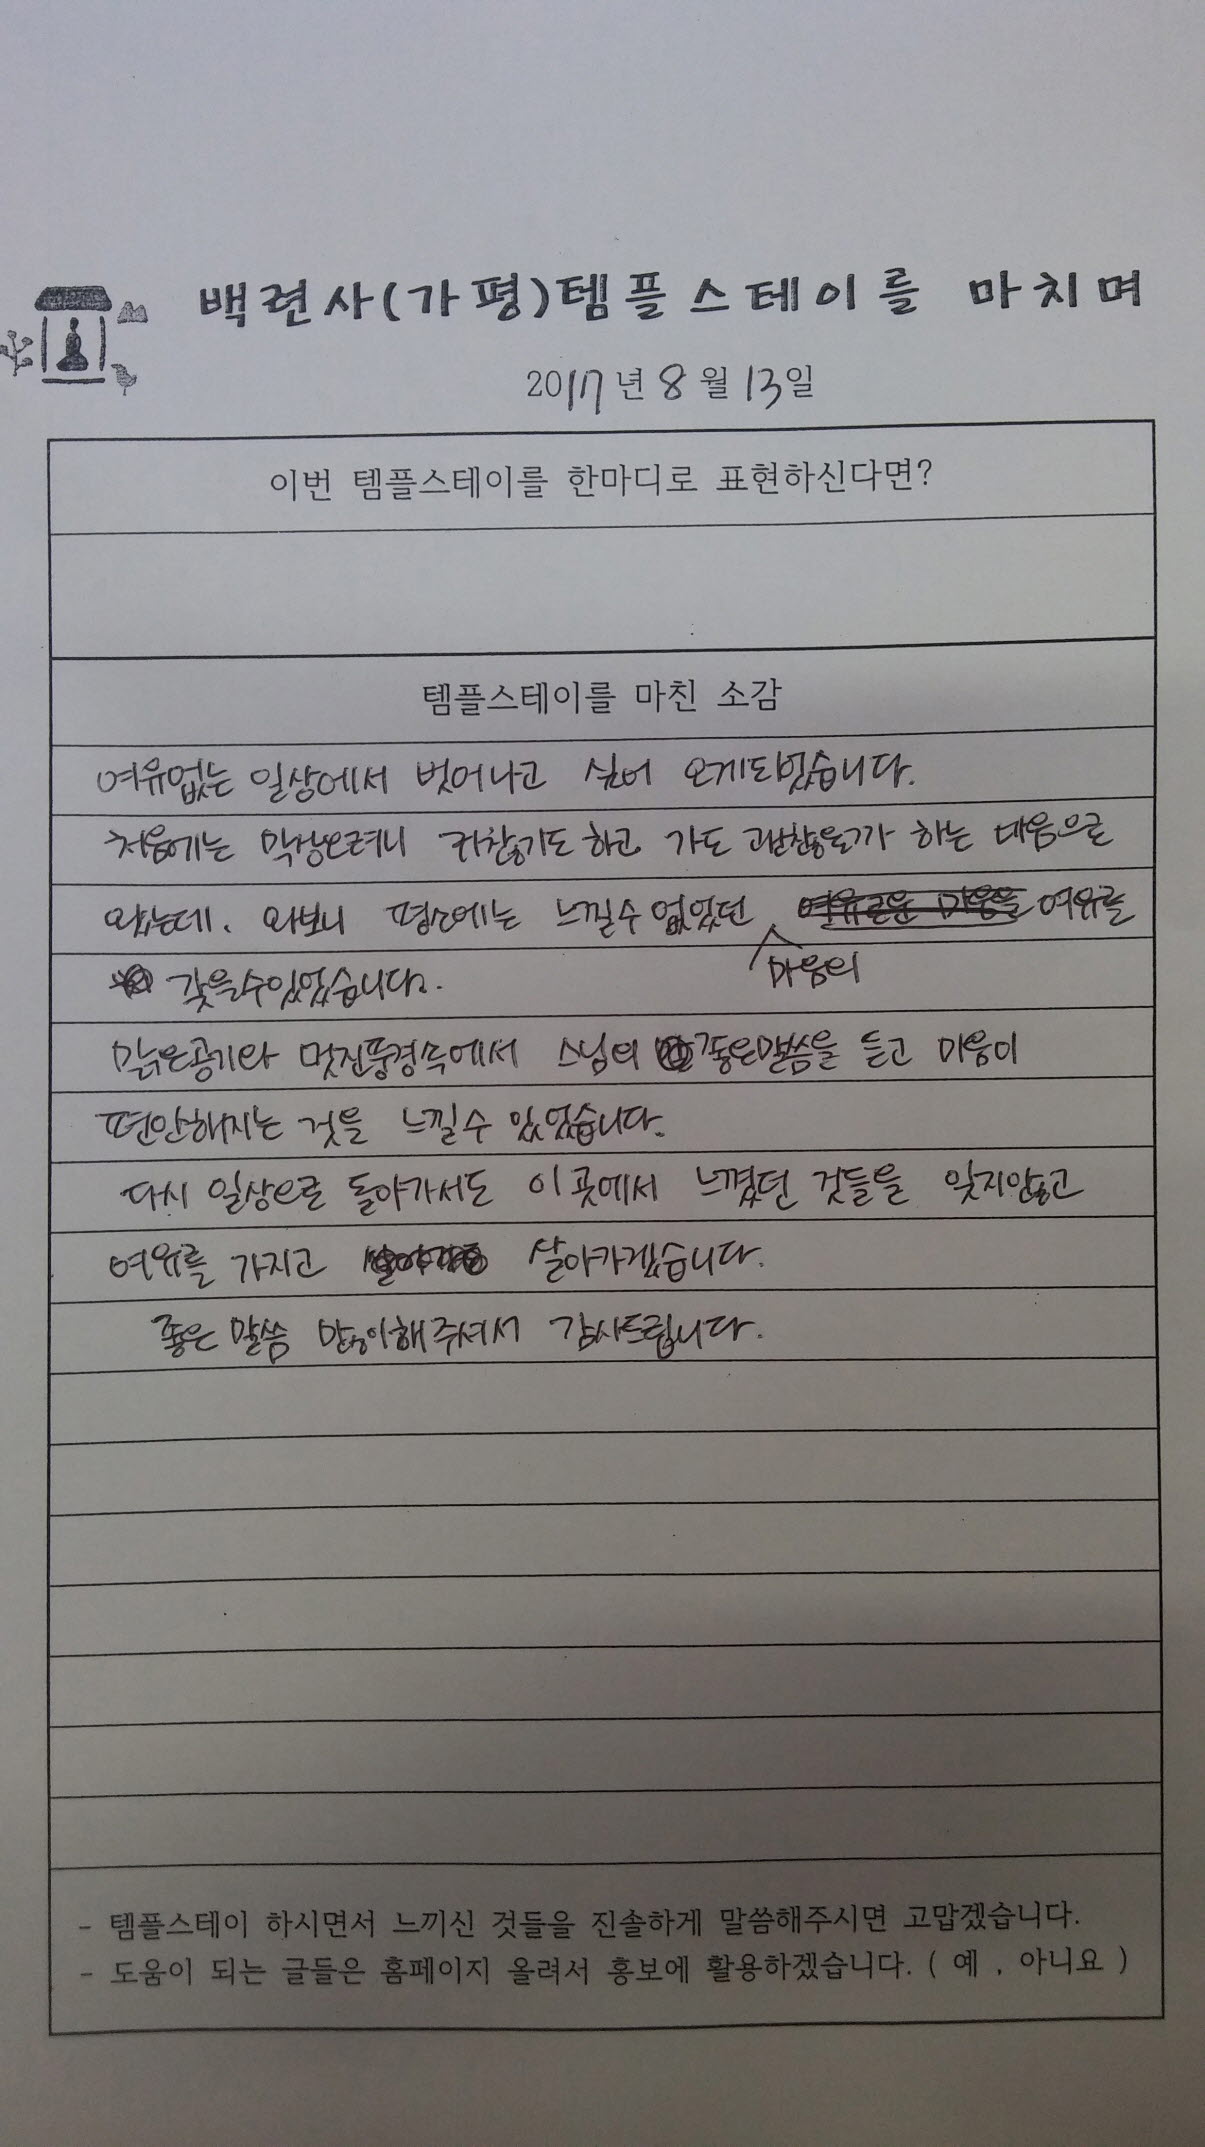 백련사(가평)템플스테이를 마치며
2017년 8월 13일
이번 템플스테이를 한마디로 표현하신다면?
템플스테이를 마친 소감
여유없는 일상에서 벗어나고 싶어 오게되었습니다.
처음에는 막상오려니 귀찮기도 하고 가도 괜찮을가 하는 마음으로
왔는데. 와보니 평소에는 느낄수 없었던 여유로운 마음을 여유를
마음의
갖을수있었습니다.
맑은공기와 멋진풍경속에서 스님의 좋은말씀을 듣고 마음이
편안해지는 것을 느낄수 있었습니다.
다시 일상으로 돌아가서도 이곳에서 느꼈던 것들을 잊지않고
여유를 가지고 살아가겠습니다.
좋은 말씀 많이해주셔서 감사드립니다.
- 템플스테이 하시면서 느끼신 것들을 진솔하게 말씀해주시면 고맙겠습니다.
- 도움이 되는 글들은 홈페이지 올려서 홍보에 활용하겠습니다. ( 예 , 아니요 )